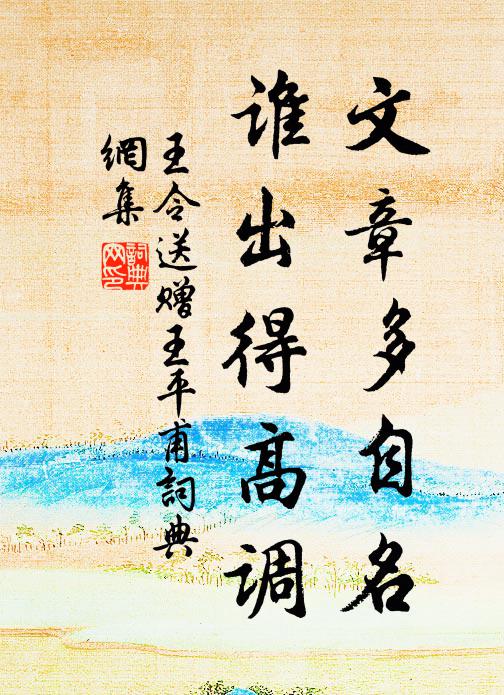 文章多自名
谁出得高调
王令送赠王平甫詞典
網集
詞典网印